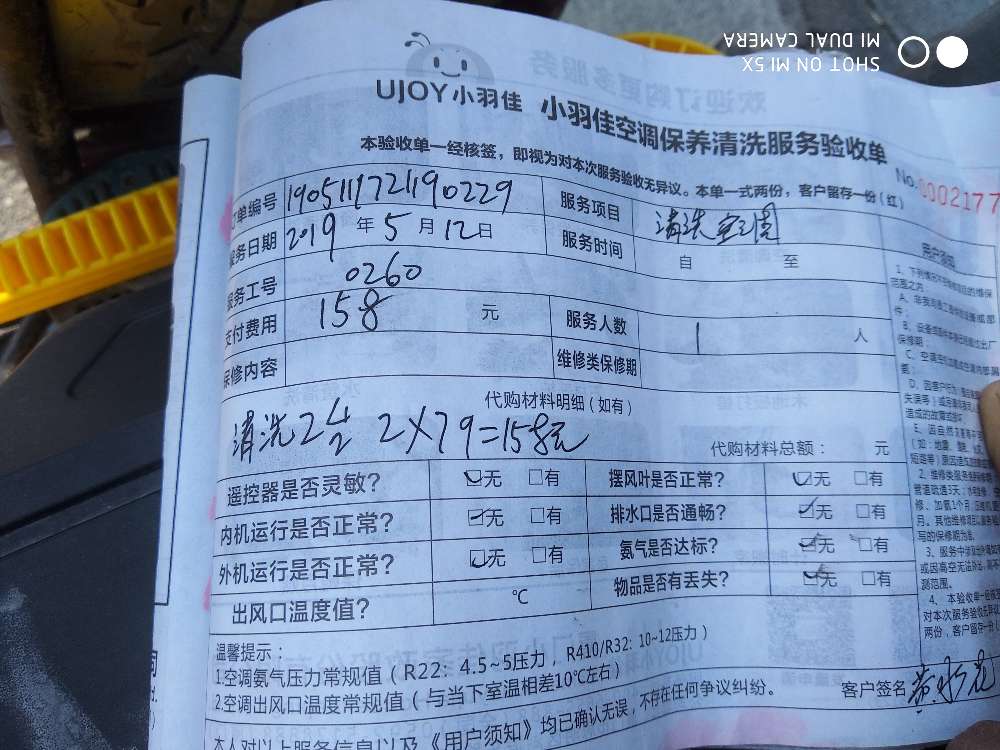 SHOT ON MI 5X
MI DUAL CAMERA
UJOY小羽佳 小羽佳空调保养清洗服务验收单
本验收单一经核签，即视为对本次服务验收无异议。本单一式两份，客户留存一份（红）
No.0002177
订单编号 1905111721190229 服务项目 清洗空调
服务日期 2019 年 5 月 12 日 服务时间 自 至
服务工号 0260
支付费用 158 元 服务人数 1 人
保修内容 维修类保修期
代购材料明细（如有）
清洗2台 2×79=158元
代购材料总额： 元
遥控器是否灵敏？ ☑无 □有 摆风叶是否正常？ ☑无 □有
内机运行是否正常？ ☑无 □有 排水口是否通畅？ ☑无 □有
外机运行是否正常？ ☑无 □有 氨气是否达标？ ☑无 □有
出风口温度值？ ℃ 物品是否有丢失？ ☑无 □有
温馨提示：
1.空调氨气压力常规值（R22：4.5~5压力，R410/R32：10~12压力）
2.空调出风口温度常规值（与当下室温相差10℃左右）
本人对以上服务信息以及《用户须知》均已确认无误，不存在任何争议纠纷。
客户签名
用户须知
范围之内
件；
保修期；
造成的故障
3、服务中
或因高空无
测范围。
4、本验收单一经
对本次服务验收无异
两份，客户留存一份